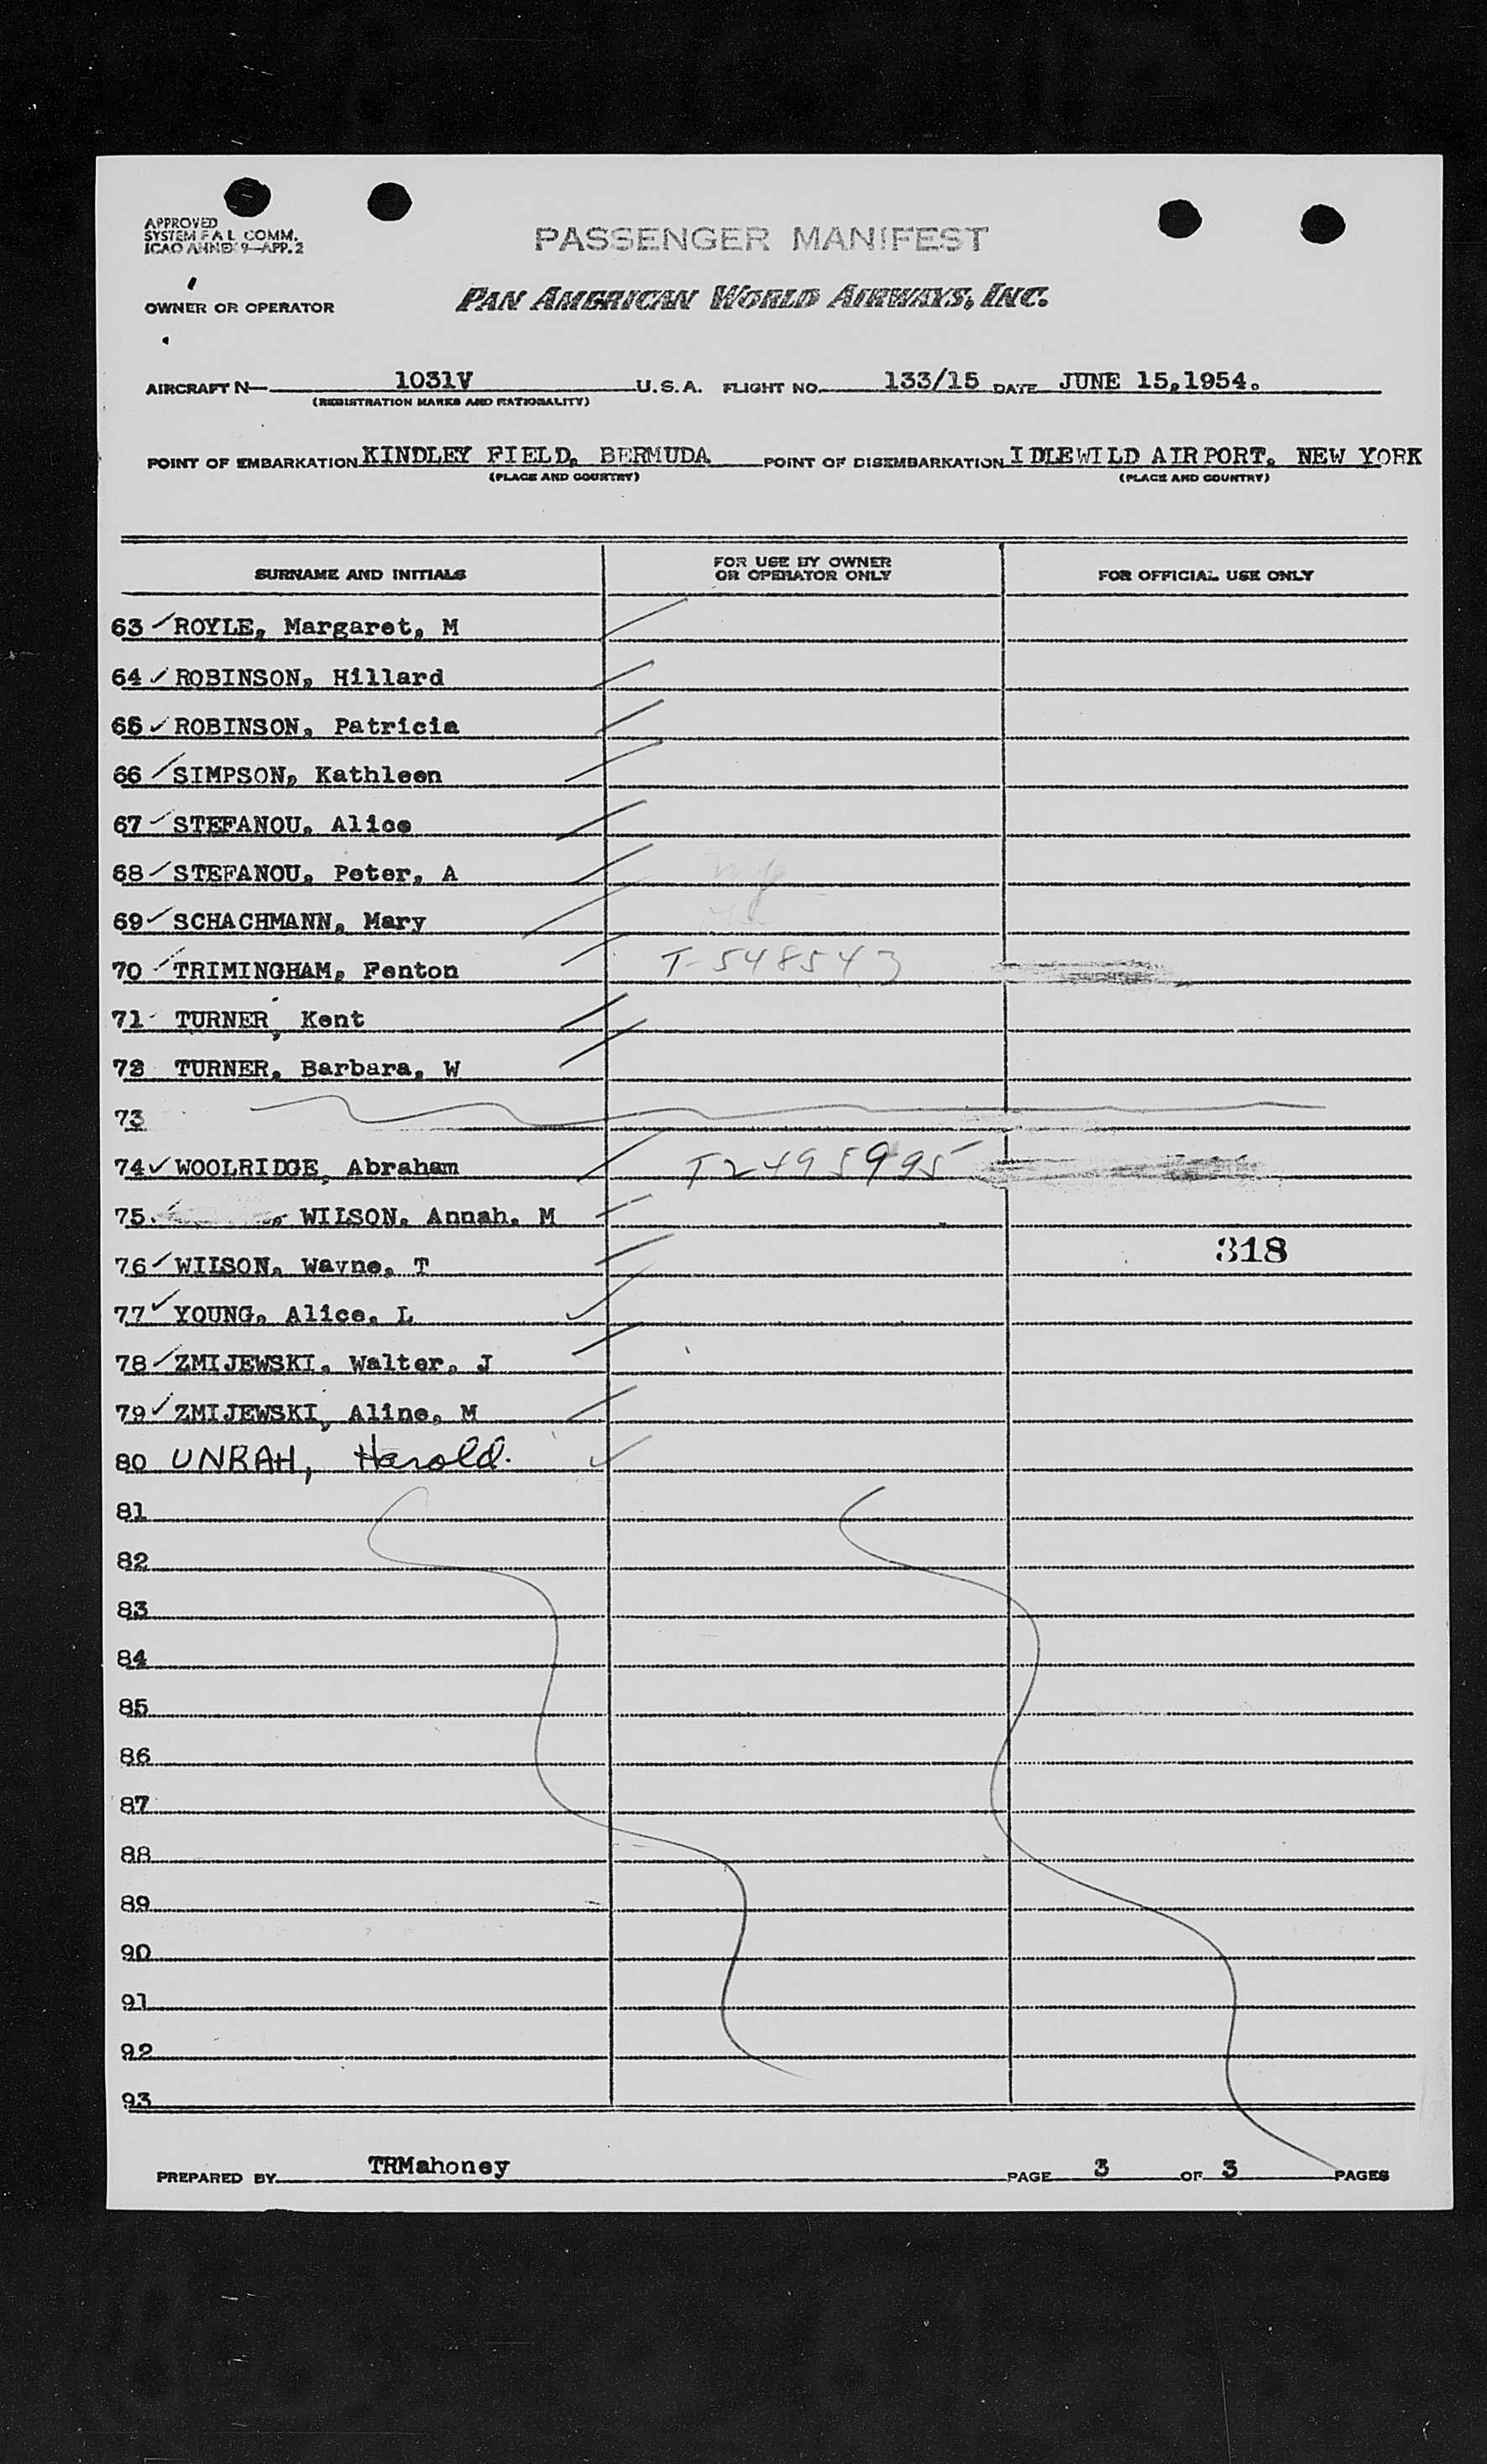 APPROVED
SYSTEM F A L COMM.
ICAO ANNEX 9—APP. 2
PASSENGER MANIFEST
OWNER OR OPERATOR PAN AMERICAN WORLD AIRWAYS, INC.
AIRCRAFT N— 1031V U.S.A. FLIGHT NO. 133/15 DATE JUNE 15,1954.
(REGISTRATION MARKS AND NATIONALITY)
POINT OF EMBARKATION KINDLEY FIELD, BERMUDA POINT OF DISEMBARKATION IDLEWILD AIRPORT, NEW YORK
(PLACE AND COUNTRY) (PLACE AND COUNTRY)
SURNAME AND INITIALS FOR USE BY OWNER OR OPERATOR ONLY FOR OFFICIAL USE ONLY
63 ROYLE, Margaret, M
64 ROBINSON, Hillard
65 ROBINSON, Patricia
66 SIMPSON, Kathleen
67 STEFANOU, Alice
68 STEFANOU, Peter, A
69 SCHACHMANN, Mary
70 TRIMINGHAM, Fenton T-548543
71 TURNER, Kent
72 TURNER, Barbara, W
73
74 WOOLRIDGE, Abraham T2495995
75. WILSON, Annah, M
76 WILSON, Wayne, T 318
77 YOUNG, Alice, L
78 ZMIJEWSKI, Walter, J
79 ZMIJEWSKI, Aline, M
80 UNRAH, Harold.
81
82
83
84
85
86
87
88
89
90
91
92
93
PREPARED BY TRMahoney PAGE 3 OF 3 PAGES